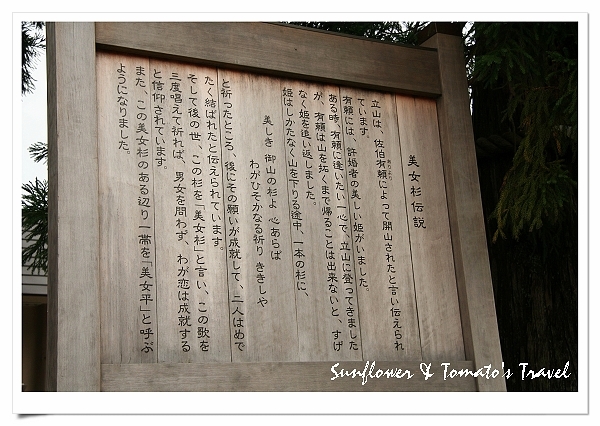 美女杉伝説
立山は、佐伯有頼によって開山されたと言い伝えられ
ています。
有頼には、許婚者の美しい姫がいました。
ある時、有頼に逢いたい一心で、立山に登ってきました
が、有頼は山を拓くまで帰ることは出来ないと、すげ
なく姫を追い返しました。
姫はしかたなく山を下りる途中、一本の杉に、
美しき 御山の杉よ 心あらば
わがひそかなる祈り ききしや
と祈ったところ、後にその願いが成就して、二人はめで
たく結ばれたと伝えられています。
そして後の世、この杉を「美女杉」と言い、この歌を
三度唱えて祈れば、男女を問わず、わが恋は成就する
と信仰されています。
また、この美女杉のある辺り一帯を「美女平」と呼ぶ
ようになりました。
Sunflower & Tomato's Travel